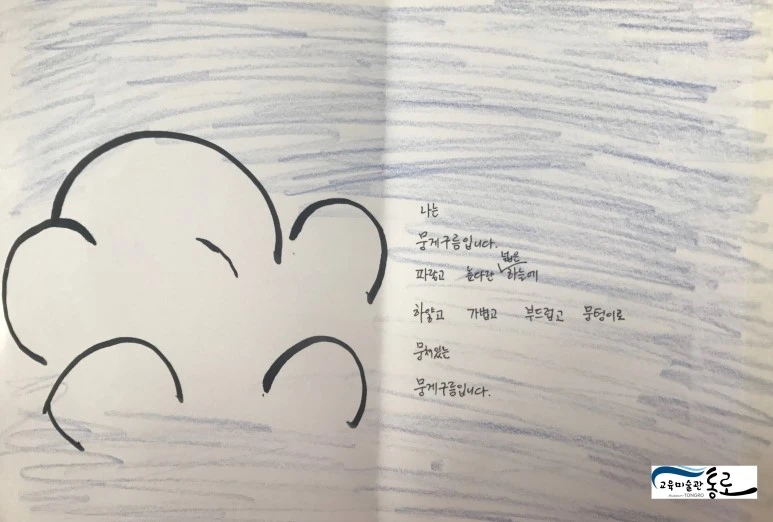 나는
뭉게구름입니다.
파랗고 높다란 넓은 하늘에
하얗고 가볍고 부드럽고 뭉텅이로
뭉쳐있는
뭉게구름입니다.
교육미술관 통로
Museum TONGRO